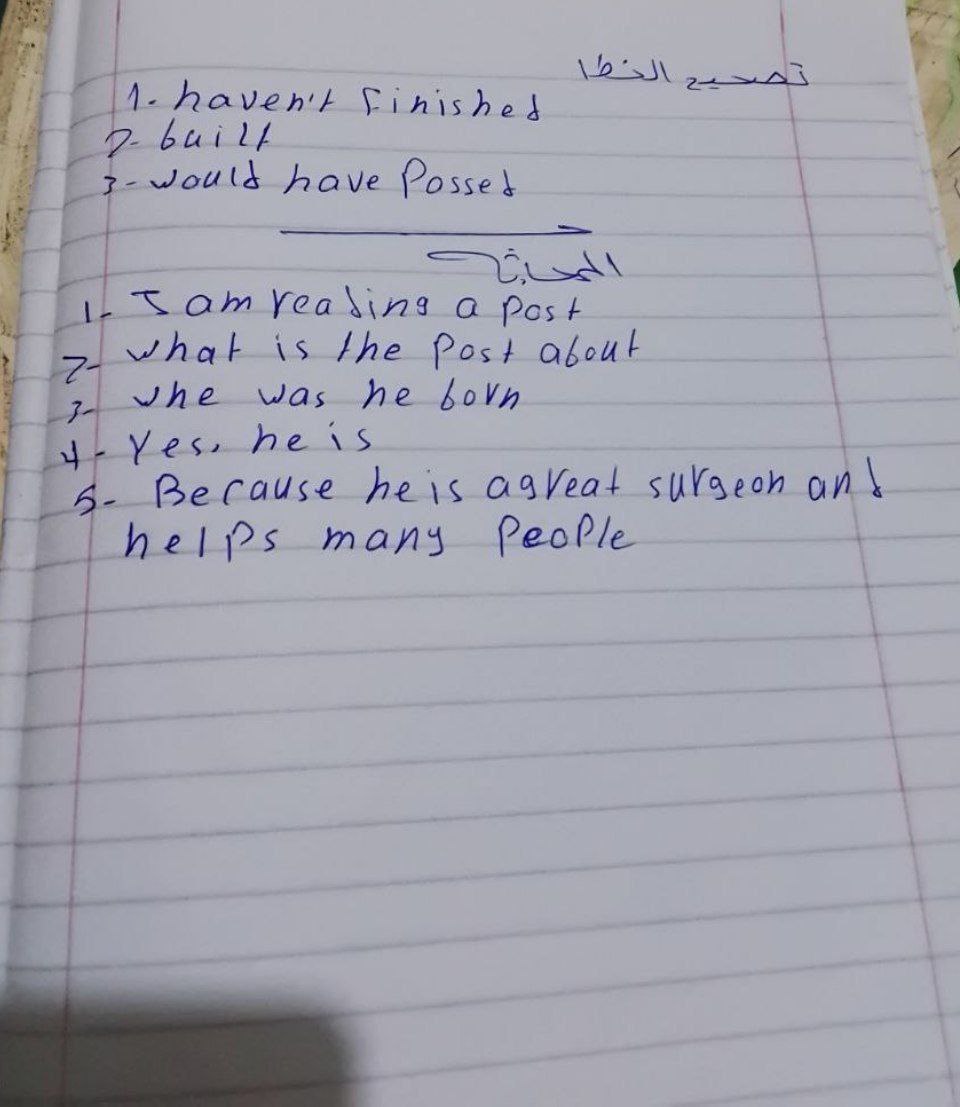 تصحيح الخطا
1- haven't finished
2- built
3- would have Possed
المحادثة
1- I am reading a post
2- what is the post about
3- whe was he born
4- Yes, he is
5- Because he is a great surgeon and
helps many People